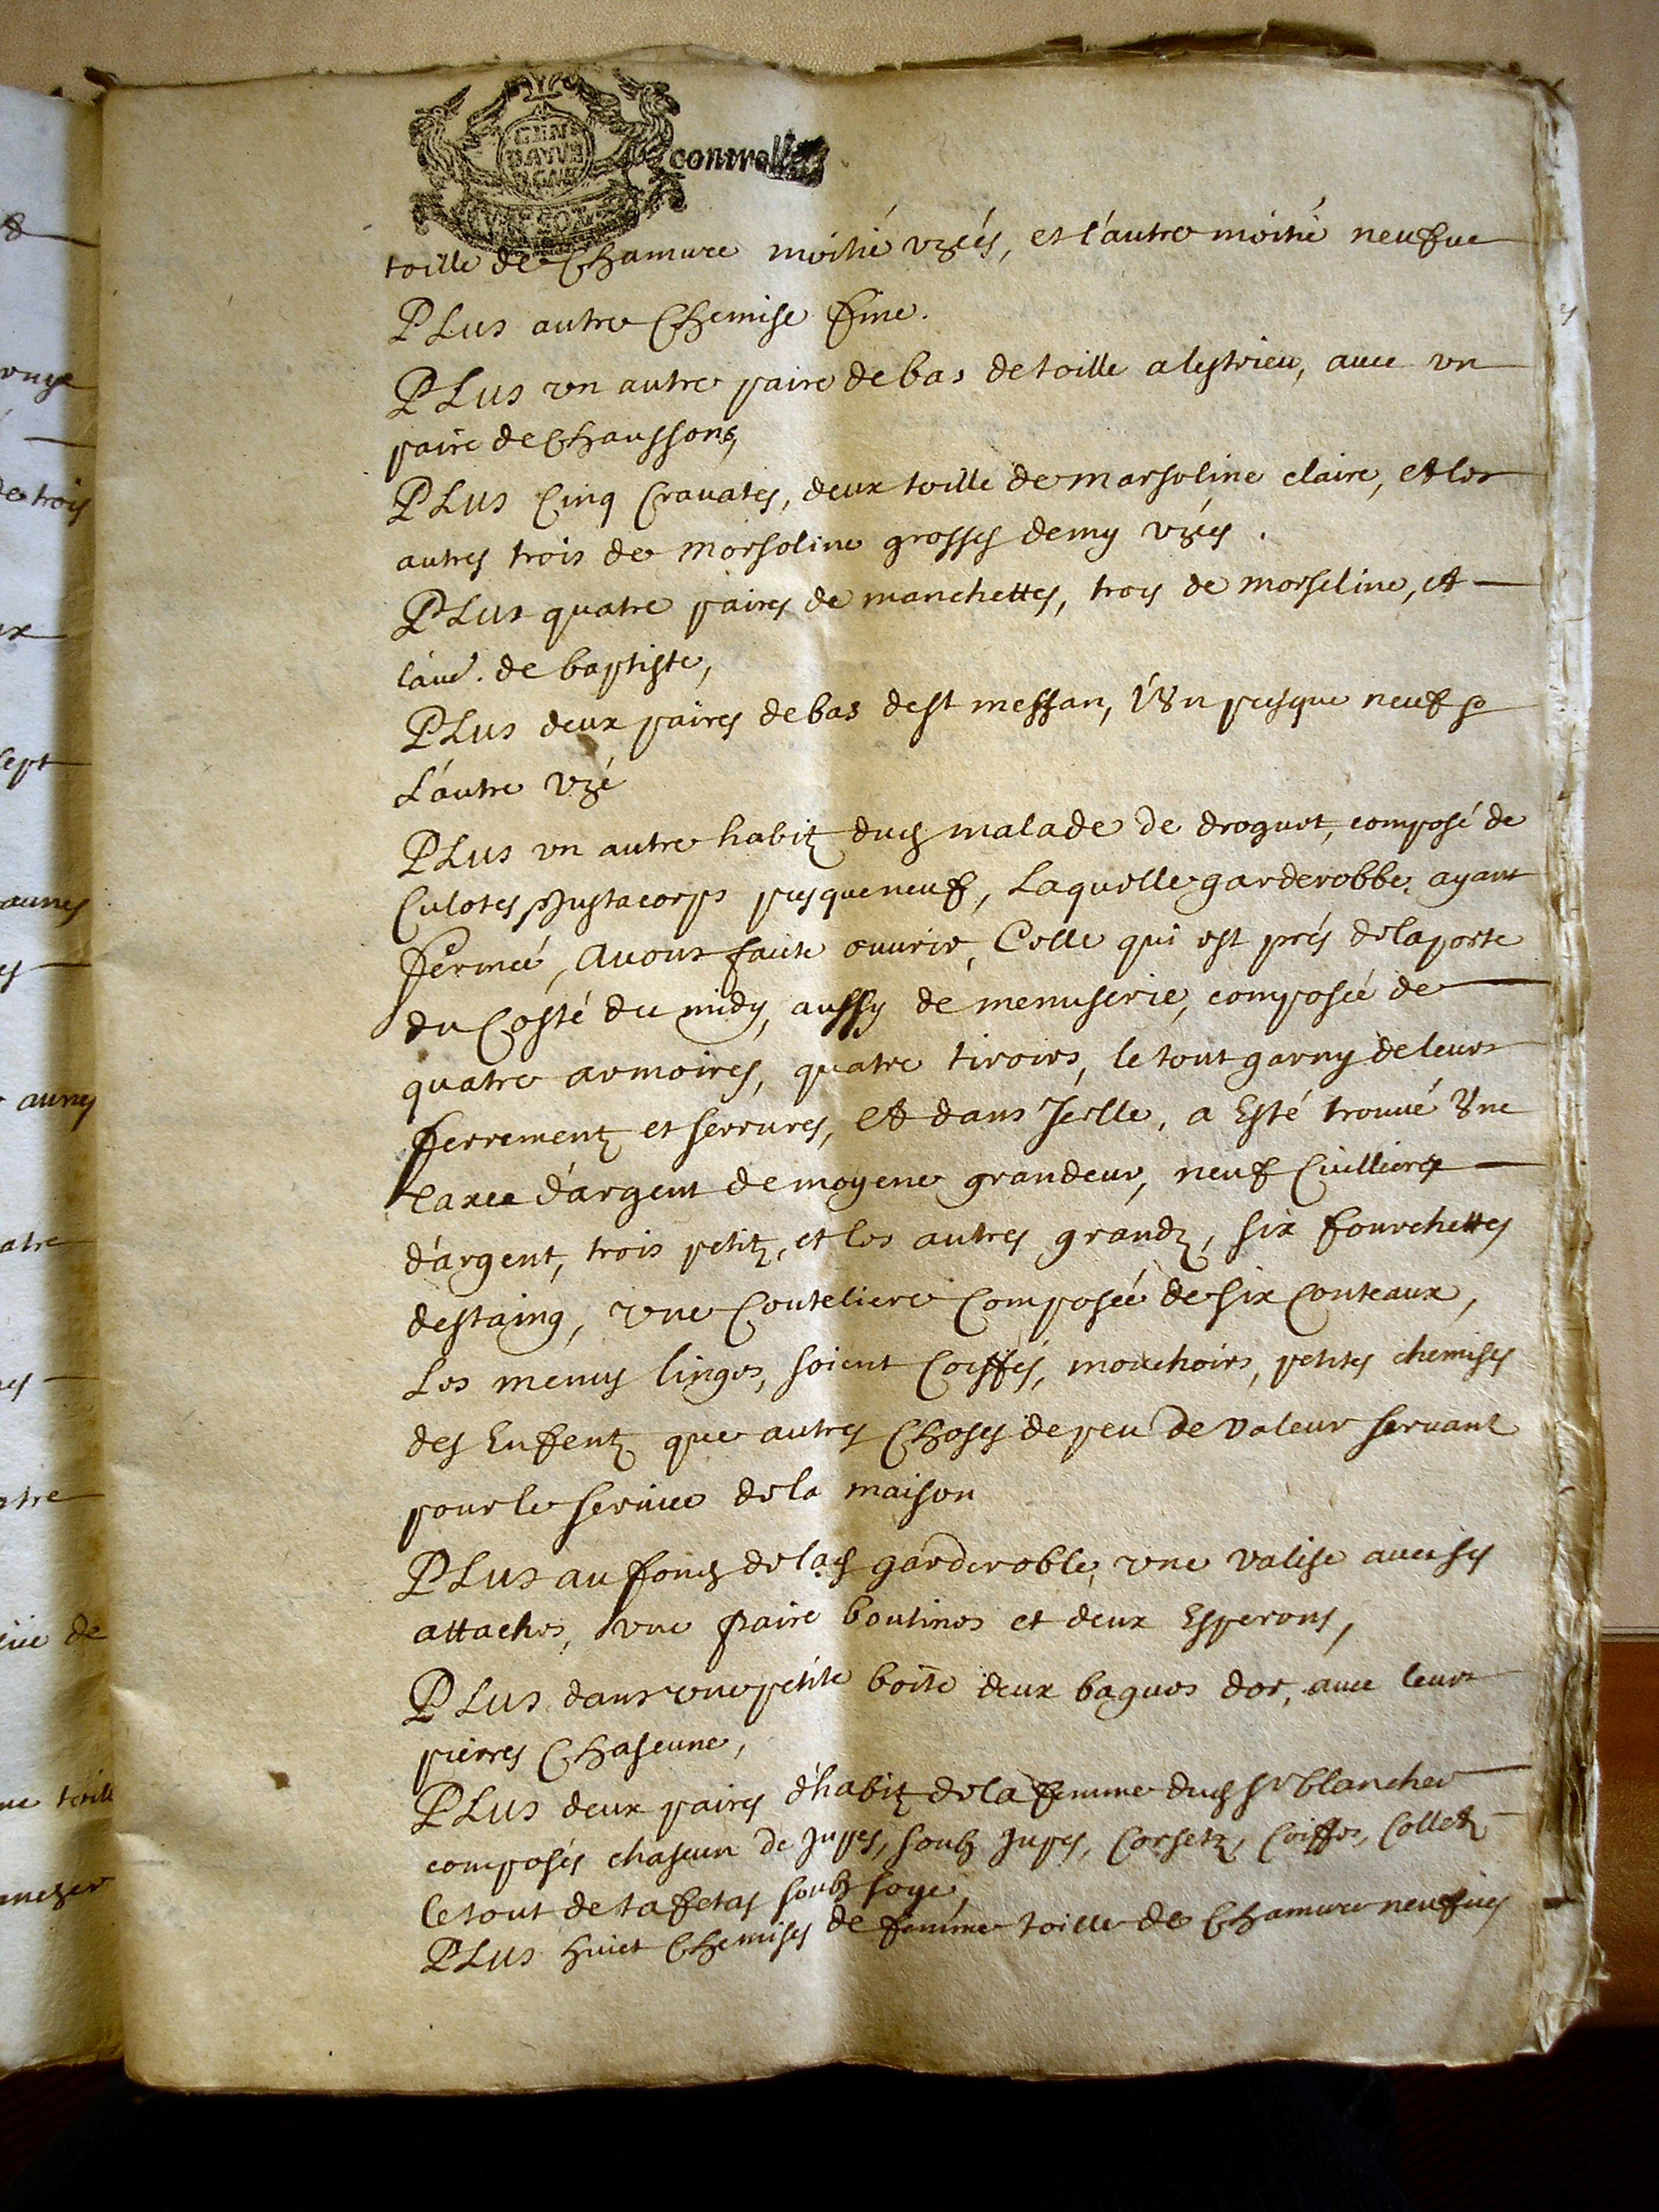 GEN
DAUVE
RGNE
controlle
toille de Chamure moitié uzéés, et l'autre moitié neufue
PLus autre Chemise fine.
PLus vn autre paire de bas de toille a lestrieu, auec vn
paire de Chaussons,
PLus Cinq Crauates, deux toille de marsoline claire, et les
autres trois de morsoline grosses demy vzées.
PLus quatre paires de manchettes, trois de morseline, et
l'aut. de baptiste,
PLus deux paires de bas dest messan, l'un presque neuf
L'autre vzé
PLus vn autre habitz dud malade de droguet, composé de
Culotes, Justacorps presque neuf, Laquelle garderobbe, ayant
fermeé, auons faite ouurir, Celle qui est prés de la porte
du Costé du midy, aussy de menuserie, composeé de
quatre armoires, quatre tiroirs, le tout garny de leurs
ferrementz et serrures, et dans Jcelle, a Esté trouué vne
tasce d'argent de moyene grandeur, neuf Cuilliers
d'argent, trois petitz, et les autres grandz, six fourchettes
destaing, vne Couteliere Composeé de six Couteaux,
Les menus linges, soient Coiffés, mouchoirs, petites chemises
des Enfentz que autres Choses de peu de valeur seruant
pour le seruice de la maison
PLus au fondz de lad garderoble, vne valise auec ses
attaches, vne paire boutines et deux Esperons,
PLus dans vne petite boite deux bagues dor, auec leurs
pierres Chascune,
PLus deux paires d'habitz de la femme dud sr blancher
composés chascun de Jupes, soubz Jupes, Corsetz, Coiffes, Colletz
le tout de tafetas soubz soye,
PLus huict Chemises de femme toille de Chamure neufues